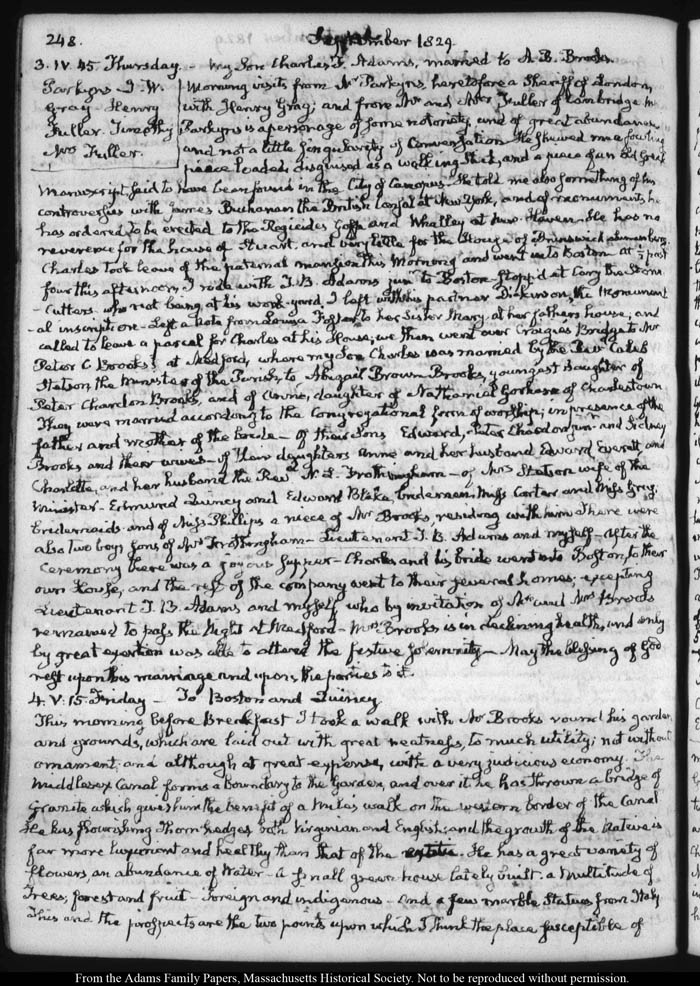 248.
September 1829.
3. IV. 45. Thursday. – My Son Charles F. Adams, married to A. B. Brooks.
Parkyns – T. W.
Gray – Henry
Fuller. Timothy
Mrs Fuller.
Morning visits from Mr Parkyns, heretofore a Sheriff of London,
with Henry Gray; and from Mr and Mrs Fuller of Cambridge Mr
Parkyns is a personage of some notoriety and of great abundance
and not a little singularity of Conversation. He shewed me a fowling
piece loaded, disguised as a walking Stick, and a piece of an old Greek
Manuscript said to have been found in the City of Canopus. He told me also something of his
controversies with James Buchanan the British Consul at New York, and of monuments he
has ordered to be erected to the Regicides Goffe and Whalley at New-Haven. He has no
reverence for the house of Stuart, and very little for the House of Brunswick Lunenburg.
Charles took leave of the paternal mansion this Morning and went in to Boston. At ½ past
four this afternoon, I rode with J. B. Adams junr to Boston. Stopp'd at Cary the Stone
-Cutters. who not being at his work-yard, I left with his partner Dickinson, the Monument
-al inscription. Left a Note from Louisa Foster to her Sister Mary at her fathers house; and
called to leave a parcel for Charles at his House; we then went over Craigies Bridge to Mr
Peter C Brooks's at Medford, where my Son Charles was married by the Revd Caleb
Stetson, the Minister of the Parish, to Abigail Brown Brooks, youngest daughter of
Peter Chardon Brooks, and of Anne, daughter of Nathaniel Gorham of Charlestown
They were married according to the Congregational form of worship; in presence of the
father and mother of the bride – of their Sons Edward, Peter Chardon jun. and Sidney
Brooks and their wives – of their daughters Anne and her husband Edward Everett, and
Charlotte, and her husband the Revd N. L. Frothingham – of Mrs Stetson wife of the
Minister – Edmund Quincy and Edward Blake, bridesmen, Miss Carter and Miss Gray,
Bridesmaids and of Miss Phillips a niece of Mr Brooks, residing with him. There were
also two boys sons of Mrs Frothingham – Lieutenant T. B. Adams and myself – After the
ceremony there was a joyous supper – Charles and his bride went into Boston, to their
own House, and the rest of the company went to their several homes; excepting
Lieutenant T. B. Adams and myself, who by invitation of Mr and Mrs Brooks
remained to pass the Night at Medford – Mrs Brooks is in declining health, and only
by great exertion was able to attend the festive solemnity – May the blessing of God
rest upon this marriage and upon the parties to it.
4. V: 15. Friday – To Boston and Quincy
This morning before Breakfast I took a walk with Mr Brooks round his garden
and grounds, which are laid out with great neatness, to much utility; not without
ornament; and although at great expense, with a very judicious economy. The
Middlesex Canal forms a boundary to the Garden, and over it he has thrown a bridge of
Granite which gives him the benefit of a Mile's walk on the western border of the Canal
He has flourishing Thorn hedges both Virginian and English; and the growth of the Native is
far more luxuriant and healthy than that of the . He has a great variety of
flowers, an abundance of Water – a small green house lately built. a Multitude of
Trees, forest and fruit – foreign and indigenous – and a few marble Statues from Italy
This and the prospects are the two points upon which I think the place susceptible of
From the Adams Family Papers, Massachusetts Historical Society. Not to be reproduced without permission.